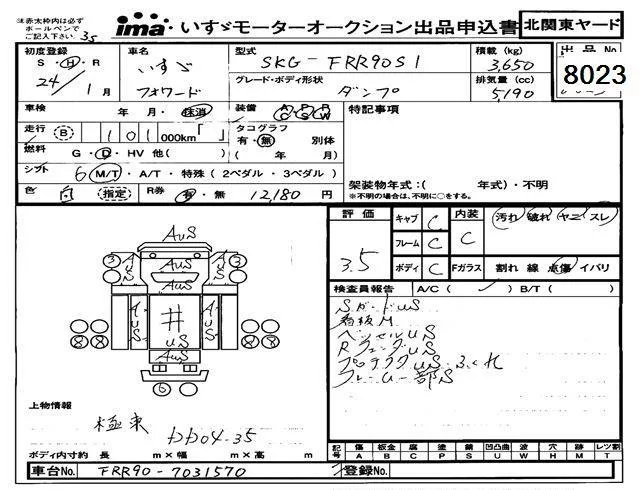 注意赤太枠内は必ず
ボールペンで
ご記入下さい。
35
ima いすゞモーターオークション出品申込書 北関東ヤード
初度登録 車名 型式 積載 (kg) 出品No
S・H・R いすゞ SKG-FRR90S1 3,650 8023
24/1月 フォワード グレード・ボディ形状 排気量 (cc)
ダンプ 5,190
車検 年・月・抹消 装備 A P R C S W 特記事項
走行 B 101 000km「 」 タコグラフ
有・無 別体
燃料 G・D・HV 他( ) ( 年 月)
シフト 6 M/T・A/T・特殊(2ペダル・3ペダル)
架装物年式:( 年式)・不明
※不明の場合は、不明に○をする。
色 白 指定 R券 有・無 12,180円
評価 キャブ C 内装 汚れ・破れ・ヤニ・スレ
3.5 フレーム C C
ボディ C Fガラス 割れ 線 点傷 イバリ
検査員報告 A/C( ✓ ) B/T( )
SガードUS
看板M
ベッセルUS
RフェンダUS
プロテクタUS ふくれ
フレーム一部S
AUS
3 AUS AUS AUS 3
AUS
AUS 井 AUS
US
8 8 AUS 8 8
6
上物情報
極東 DD04-35
ボディ内寸約 長 m×幅 m×高 m
記号 傷 板金 腐 塗 錆 凹凸曲 波 穴 跡 レツ割
A B C P S U W H M T
車台No. FRR90-7031570 登録No.